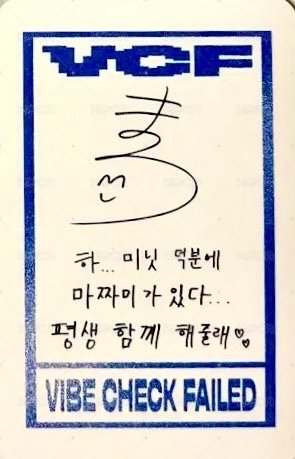 VCF
하... 미닛 덕분에
마짜미가 있다...
평생 함께 해줄래♡♡
VIBE CHECK FAILED